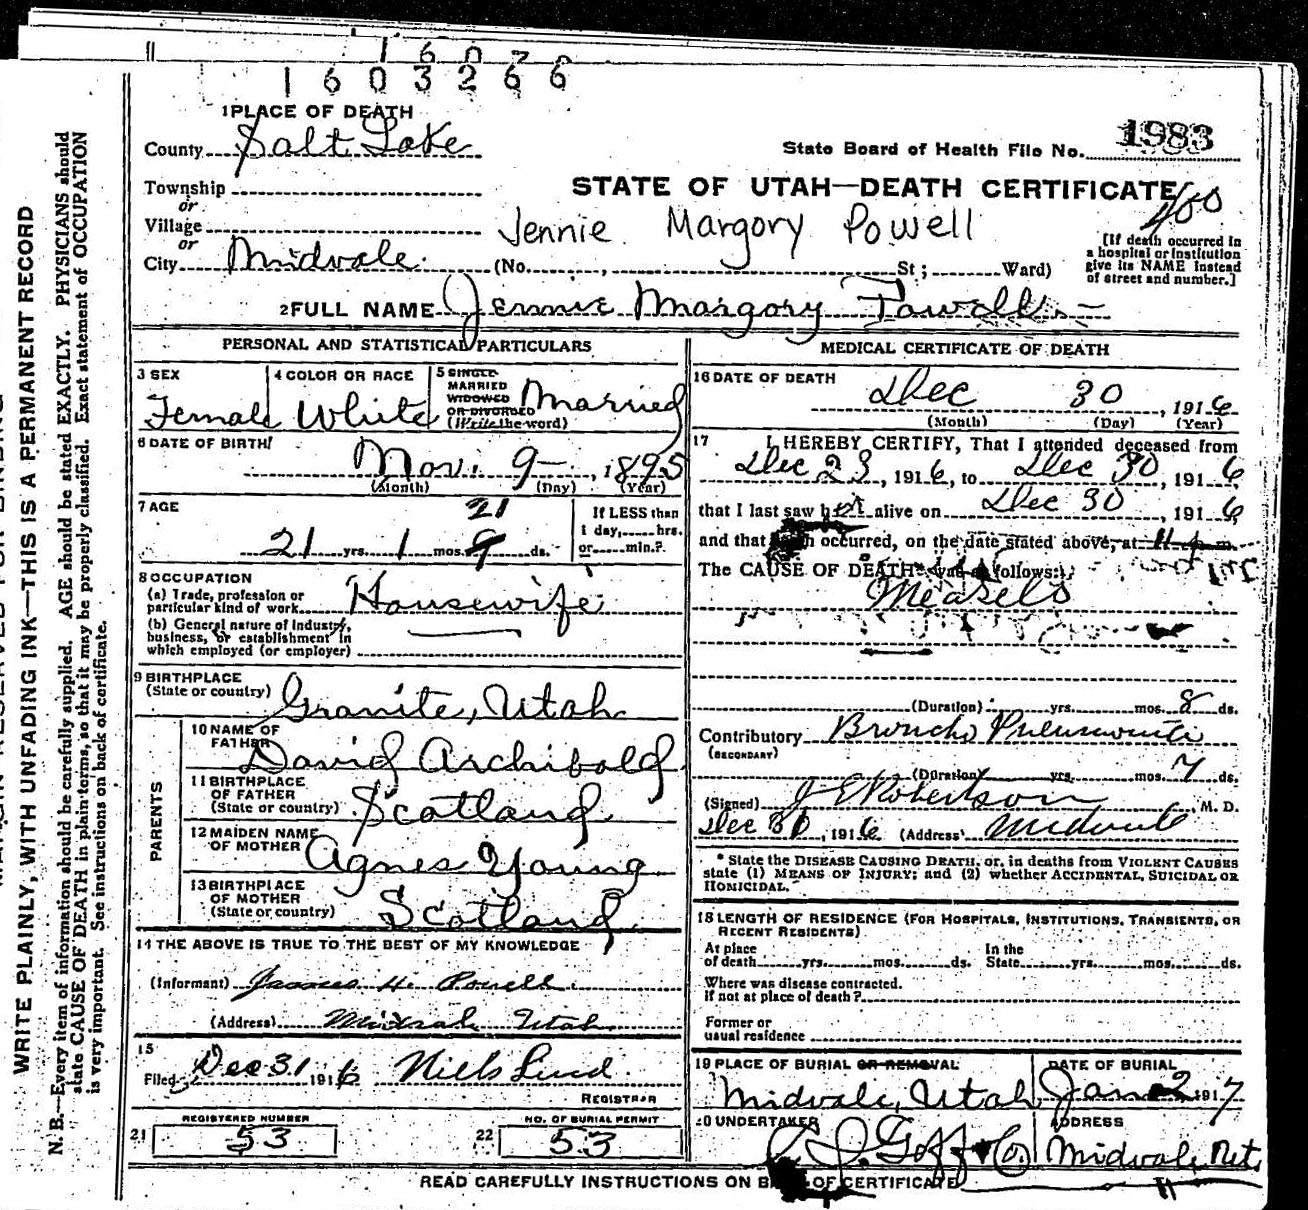 1603266
1 PLACE OF DEATH
County Salt Lake
State Board of Health File No. 1983
Township
or
STATE OF UTAH—DEATH CERTIFICATE
400
Village
or
Jennie Margory Powell
City Midvale (No. , St.; Ward)
[If death occurred in a hospital or institution give its NAME instead of street and number.]
2 FULL NAME Jennie Margory Powell
PERSONAL AND STATISTICAL PARTICULARS
3 SEX
Female
4 COLOR OR RACE
White
5 SINGLE
MARRIED
WIDOWED
OR DIVORCED
(Write the word)
Married
6 DATE OF BIRTH
Nov. 9 , 1895
(Month) (Day) (Year)
7 AGE
21
21 yrs. 1 mos. 9 ds.
If LESS than
1 day, hrs.
or min.?
8 OCCUPATION
(a) Trade, profession or
particular kind of work Housewife
(b) General nature of industry,
business, or establishment in
which employed (or employer)
9 BIRTHPLACE
(State or country) Granite, Utah
PARENTS
10 NAME OF
FATHER David Archibald
11 BIRTHPLACE
OF FATHER
(State or country) Scotland
12 MAIDEN NAME
OF MOTHER Agnes Young
13 BIRTHPLACE
OF MOTHER
(State or country) Scotland
14 THE ABOVE IS TRUE TO THE BEST OF MY KNOWLEDGE
(Informant) James H. Powell
(Address) Midvale Utah
15
Filed Dec 31 1916 Niels Lind
REGISTRAR
REGISTERED NUMBER
21 53
NO. OF BURIAL PERMIT
22 53
MEDICAL CERTIFICATE OF DEATH
16 DATE OF DEATH
Dec 30 , 1916
(Month) (Day) (Year)
17 I HEREBY CERTIFY, That I attended deceased from
Dec 23, 1916, to Dec 30, 1916
that I last saw her alive on Dec 30, 1916,
and that occurred, on the date stated above, at 11 p m.
The CAUSE OF DEATH* was as follows:
Measels
(Duration) yrs. mos. 8 ds.
Contributory Broncho Pneumonia
(SECONDARY)
(Duration) yrs. mos. 7 ds.
(Signed) J E Robertson, M. D.
Dec 30, 1916 (Address) Midvale
* State the DISEASE CAUSING DEATH, or, in deaths from VIOLENT CAUSES
state (1) MEANS OF INJURY; and (2) whether ACCIDENTAL, SUICIDAL OR
HOMICIDAL.
18 LENGTH OF RESIDENCE (FOR HOSPITALS, INSTITUTIONS, TRANSIENTS, OR
RECENT RESIDENTS)
At place
of death yrs. mos. ds.
In the
State yrs. mos. ds.
Where was disease contracted.
If not at place of death?
Former or
usual residence
19 PLACE OF BURIAL OR REMOVAL
Midvale, Utah
DATE OF BURIAL
Jan 2 1917
20 UNDERTAKER
Goff & Co.
ADDRESS
Midvale
READ CAREFULLY INSTRUCTIONS ON OF CERTIFICATE
WRITE PLAINLY, WITH UNFADING INK—THIS IS A PERMANENT RECORD
N. B.—Every item of information should be carefully supplied. AGE should be stated EXACTLY. PHYSICIANS should
state CAUSE OF DEATH in plain terms, so that it may be properly classified. Exact statement of OCCUPATION
is very important. See instructions on back of certificate.